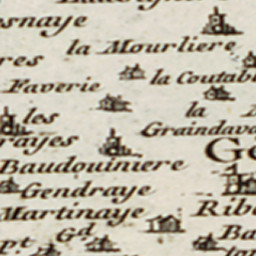 esnaye
la Mourliere
res
Faverie
la Coutab
les
rayes
la
Graindavo
Baudouiniere
Gendraye
Martinaye
Rib
Gd
Ba
pt.